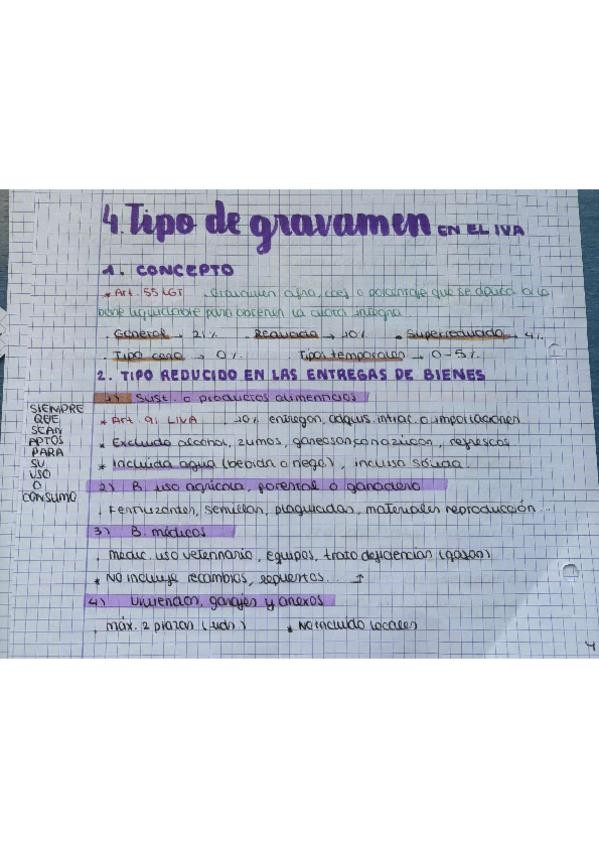 4 Tipo de gravamen EN EL IVA
1. CONCEPTO
* Art. 55 LGT . Gravamen cifra, coef. o porcentaje que se aplica a la
base liquidable para obtener la cuota íntegra
. General → 21% . Reducido → 10% . Superreducido → 4%
. Tipo cero → 0% Tipos temporales → 0-5%
2. TIPO REDUCIDO EN LAS ENTREGAS DE BIENES
1) Sust. o productos alimenticios
* Art. 91 LIVA → 10% entregas, adquis. intrac. o importaciones
* Excluido alcohol, zumos, gaseosas, refrescos
* Incluida agua (bebida o riego), incluso sólida
SIEMPRE
QUE
SEAN
APTOS
PARA
SU
USO
O
CONSUMO
2) B. uso agrícola, forestal o ganadero
. Fertilizantes, semillas, plaguicidas, materiales reproducción ...
3) B. médicos
. Medic. uso veterinario, equipos, trato deficiencias (gafas)
* NO incluye recambios, repuestos...
4) Viviendas, garajes y anexos
. máx. 2 plazas (uds) * No incluido locales
4